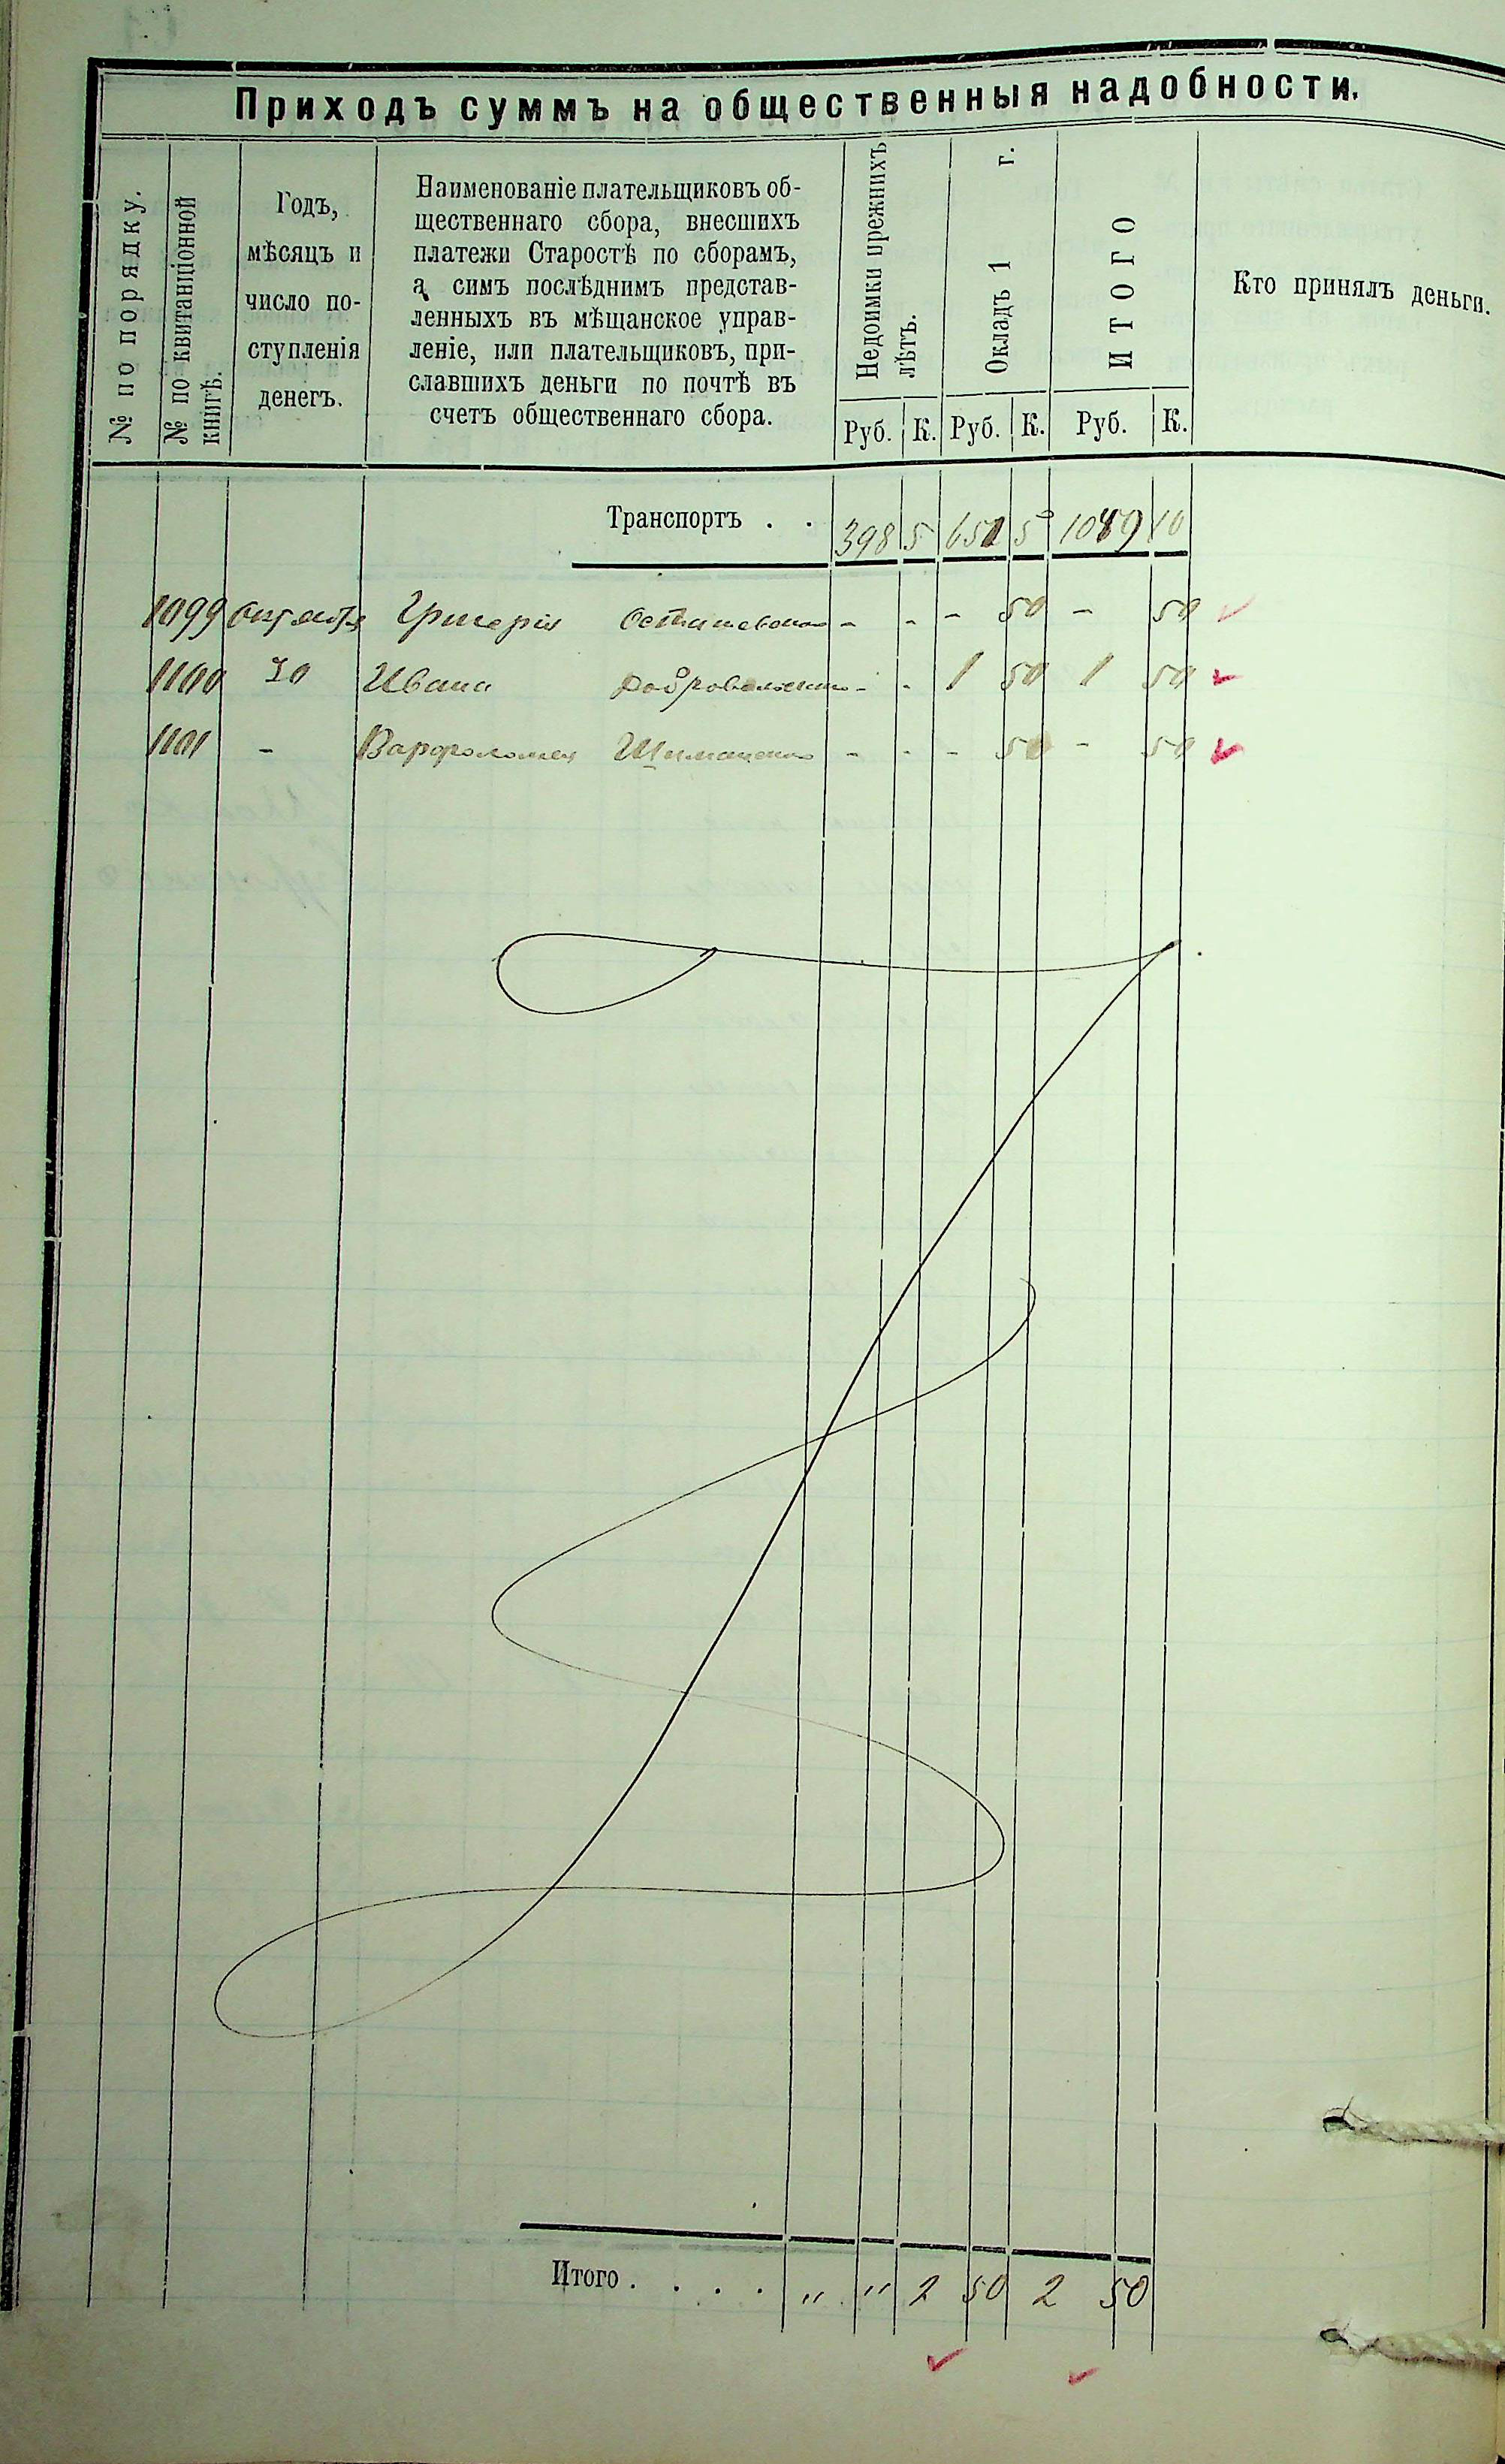 Приходъ суммъ на общественныя надобности.
№ по порядку.
№ по квитанціонной
книгѣ.
Годъ,
мѣсяцъ и
число по-
ступленія
денегъ.
Наименованіе плательщиковъ об-
щественнаго сбора, внесшихъ
платежи Старостѣ по сборамъ,
а симъ послѣднимъ представ-
ленныхъ въ мѣщанское управ-
леніе, или плательщиковъ, при-
славшихъ деньги по почтѣ въ
счетъ общественнаго сбора.
Недоимки прежнихъ
лѣтъ.
Окладъ 1 г.
ИТОГО
Кто принялъ деньги.
Руб. К. Руб. К. Руб. К.
Транспортъ . . 398 5 651 5 1049 10
1099 Октября Григорія - - - 50 - 50
1100 30 Ивана - - 1 50 1 50
1101 - Варфоломея - - - 50 - 50
Итого . . . . " " 2 50 2 50